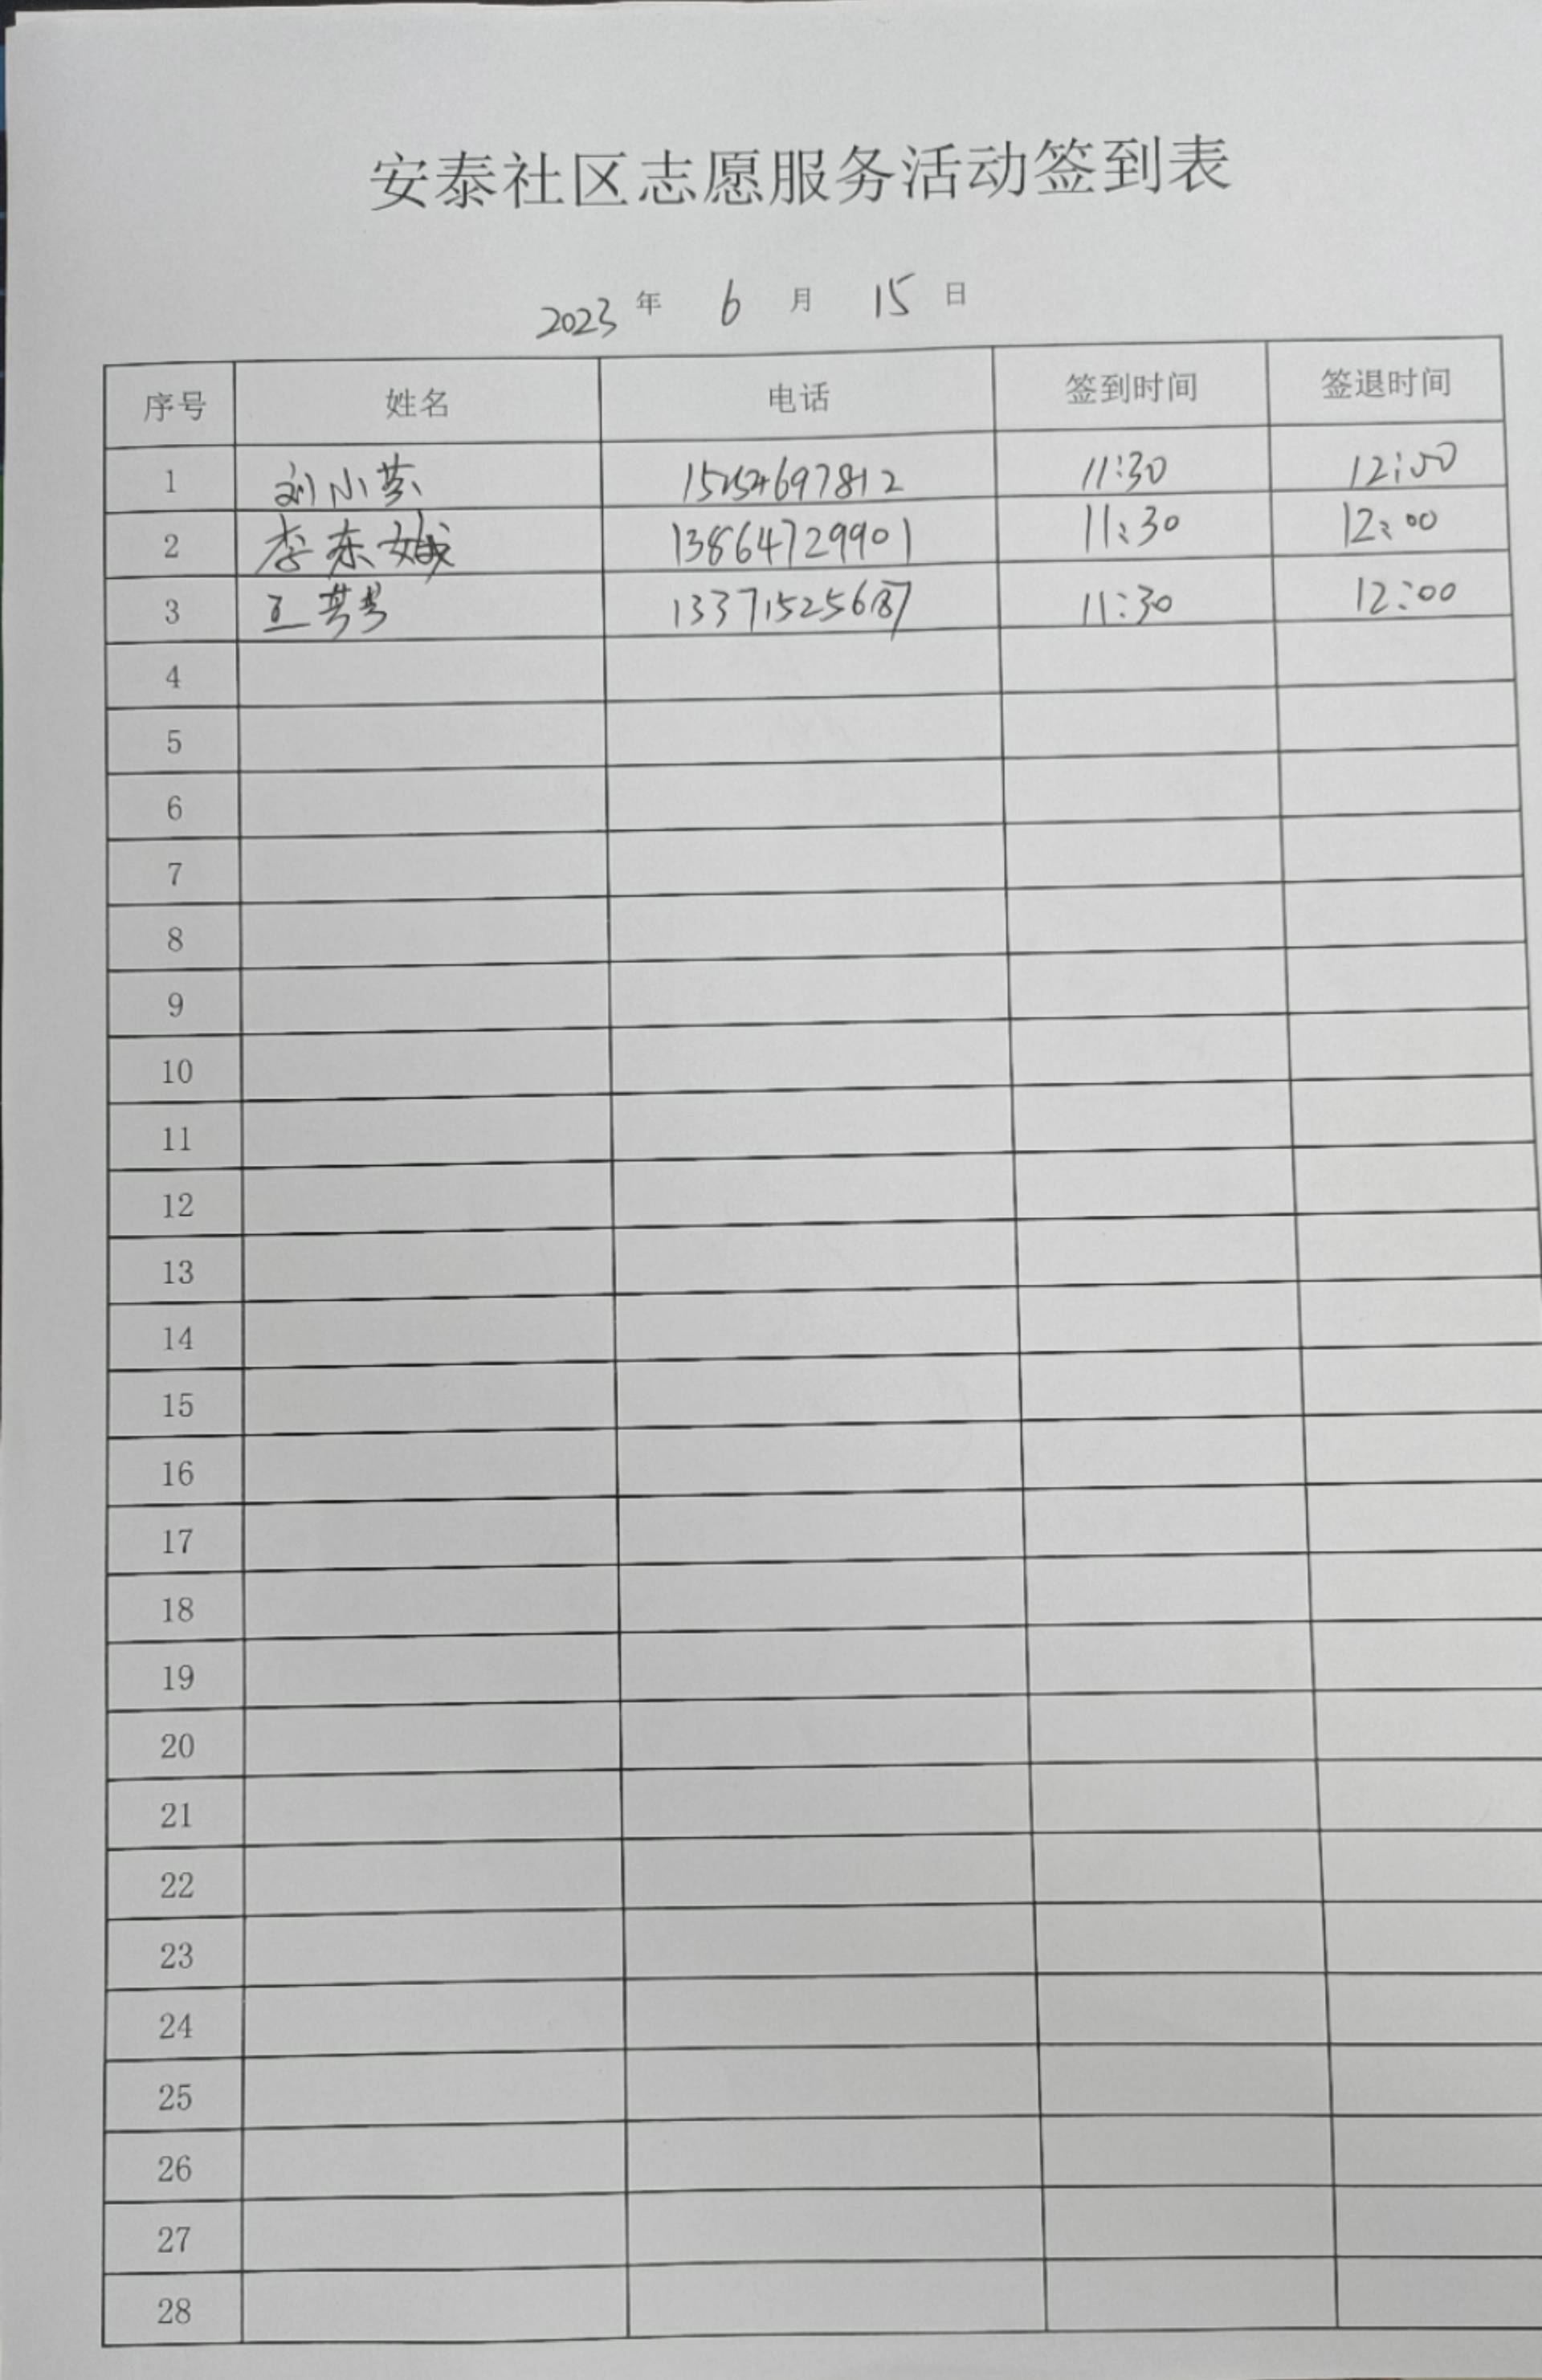 安泰社区志愿服务活动签到表
2023 年 6 月 15 日
序号 姓名 电话 签到时间 签退时间
1 刘小芸 15254697812 11:30 12:00
2 李东娥 13864729901 11:30 12:00
3 王 13371525687 11:30 12:00
4
5
6
7
8
9
10
11
12
13
14
15
16
17
18
19
20
21
22
23
24
25
26
27
28